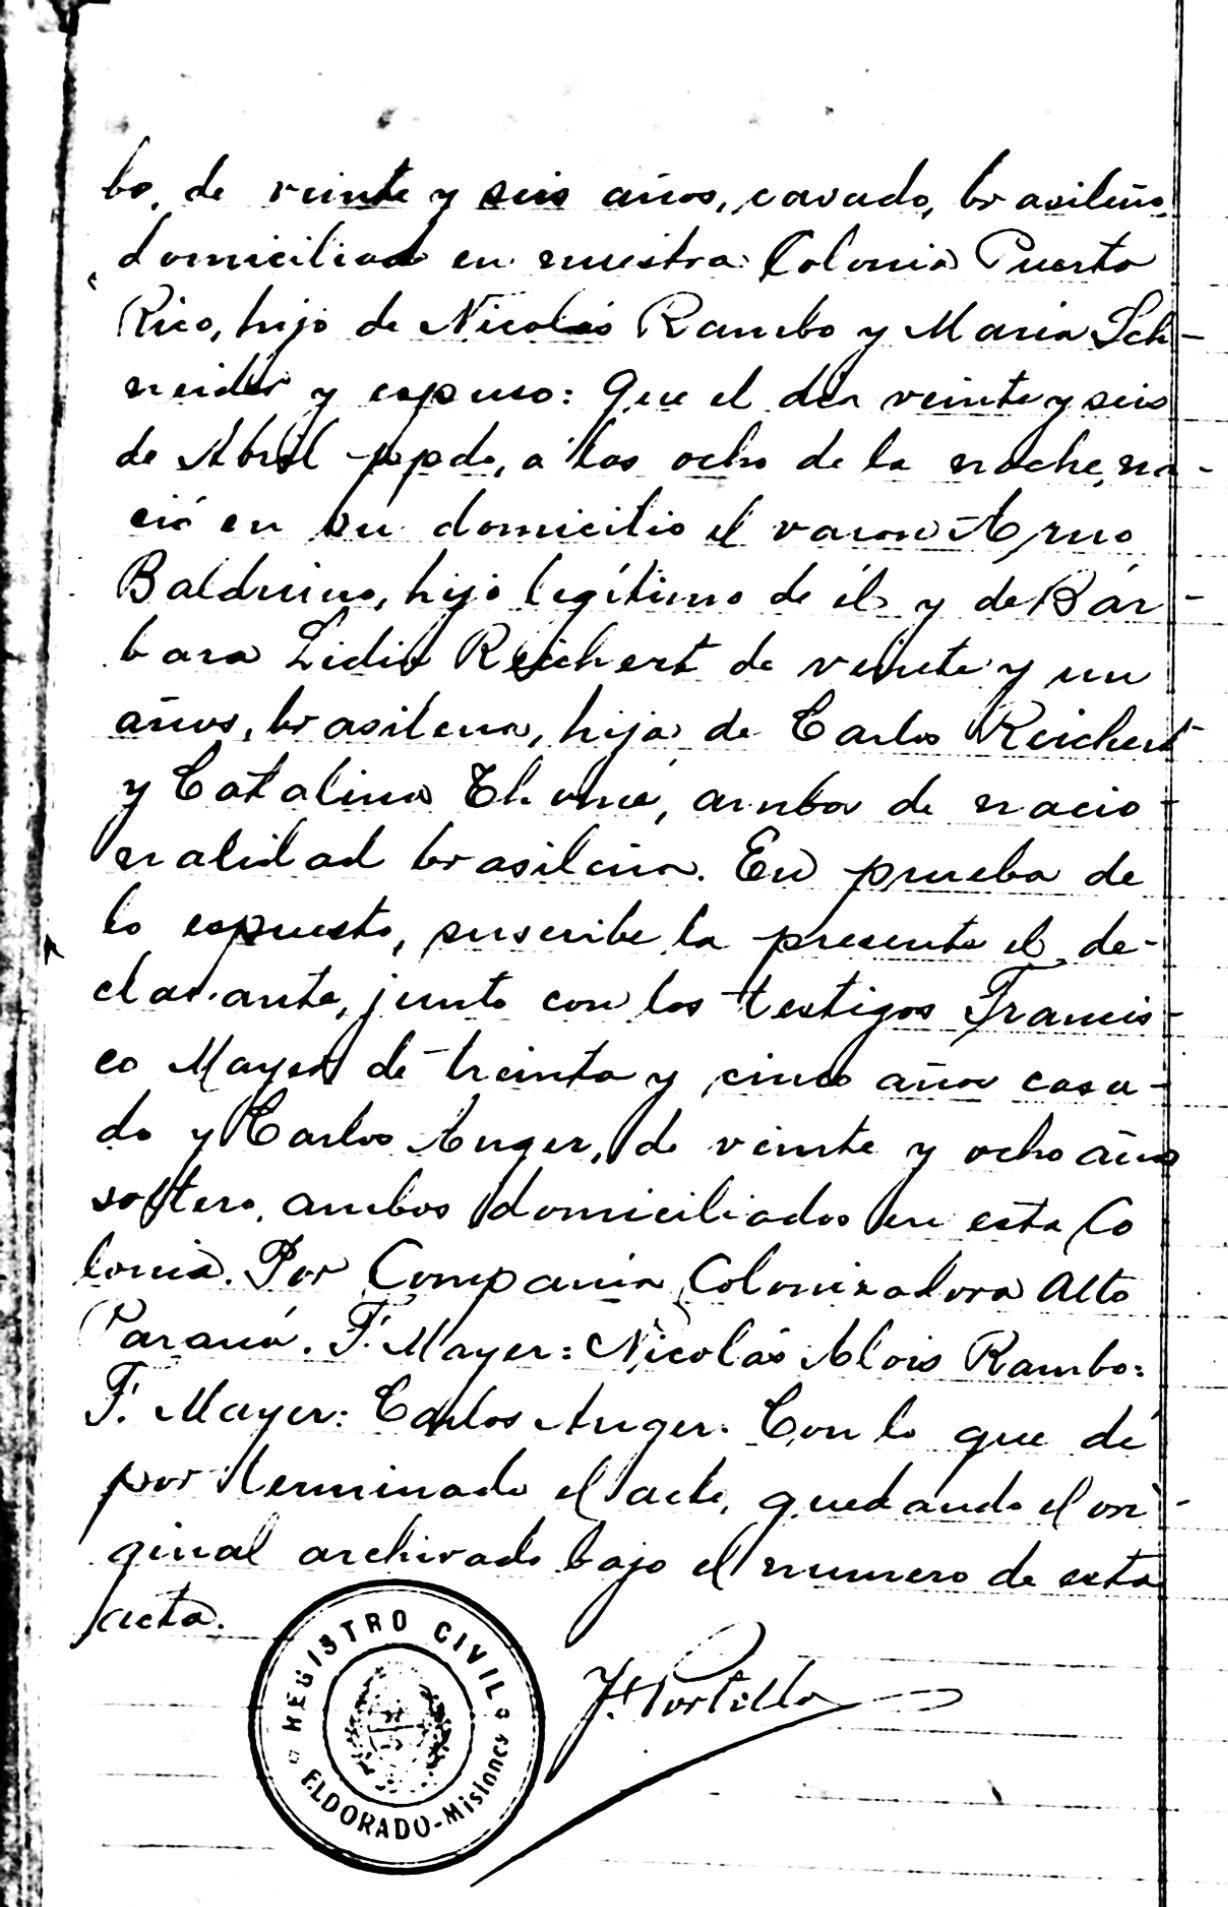 bo, de veinte y seis años, casado, brasileño,
domiciliado en nuestra Colonia Puerto
Rico, hijo de Nicolás Rambo y Maria Sch-
neider y expuso: Que el dia veinte y seis
de Abril ppdo, a las ocho de la noche, na-
ció en su domicilio el varon Arno
Balduino, hijo legítimo de él y de Bár-
bara Lidia Reichert de veinte y un
años, brasilena, hija de Carlos Reichert
y Catalina Thomé, ambos de nacio-
nalidad brasileña. En prueba de
lo espuesto, suscribe la presente el de-
clarante, junto con los testigos Francis-
co Mayer de treinta y cinco años casa-
do y Carlos Auger, de veinte y ocho años
soltero, ambos domiciliados en esta Co
lonia. Por Compania Colonizadora Alto
Paraná. F. Mayer: Nicolás Alois Rambo:
F. Mayer: Carlos Auger. Con lo que dí
por terminado el acto, quedando el ori-
ginal archivado bajo el numero de esta
acta.
J. Portillo
REGISTRO CIVIL
ELDORADO-Misiones